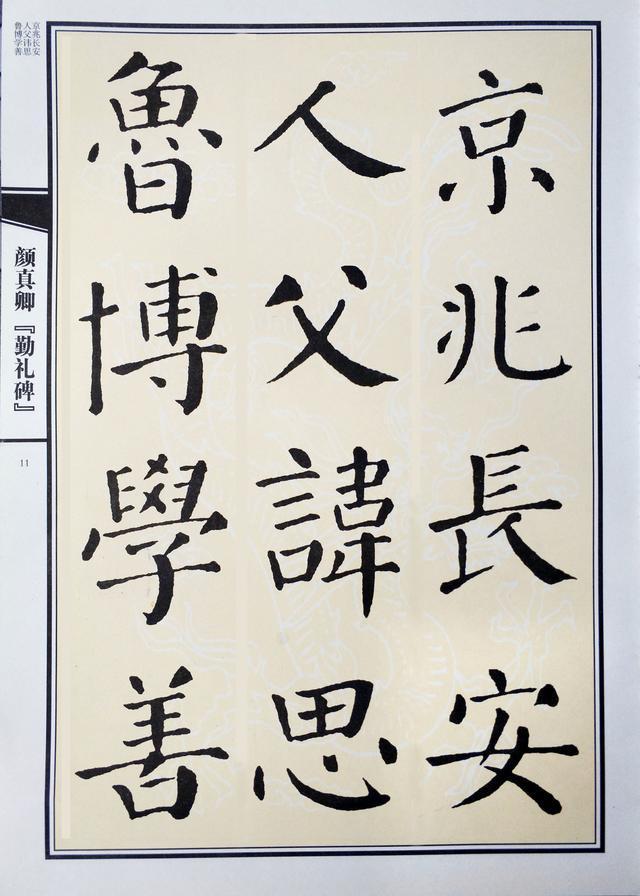 京兆長安
人父諱思
魯博學善
京兆长安
人父讳思
鲁博学善
颜真卿『勤礼碑』
11